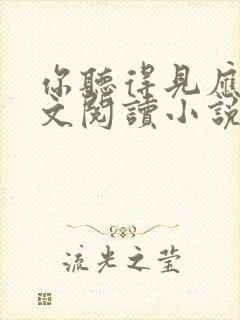 你聽得見應
文閱讀小說
流光之莹